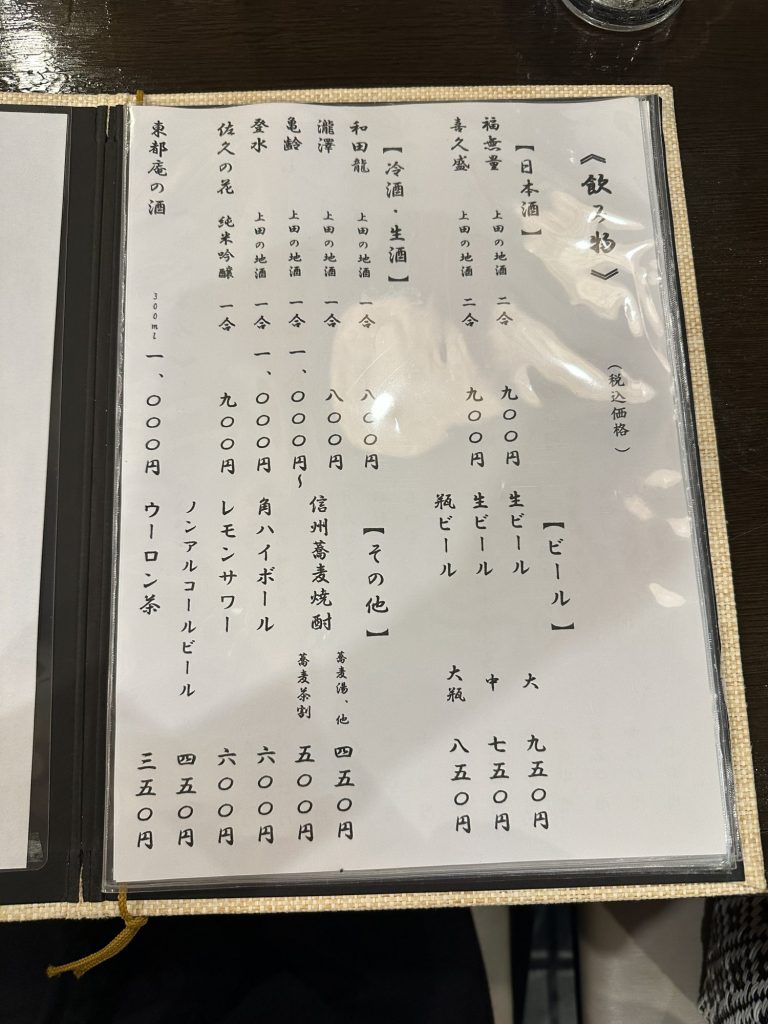 《飲み物》 (税込価格)
【日本酒】
福無量 上田の地酒 二合 九〇〇円
喜久盛 上田の地酒 二合 九〇〇円
【冷酒・生酒】
和田龍 上田の地酒 一合 八〇〇円
瀧澤 上田の地酒 一合 八〇〇円
亀齢 上田の地酒 一合 一、〇〇〇円~
登水 上田の地酒 一合 一、〇〇〇円
佐久の花 純米吟醸 一合 九〇〇円
東都庵の酒 300ml 一、〇〇〇円
【ビール】
生ビール 大 九五〇円
生ビール 中 七五〇円
瓶ビール 大瓶 八五〇円
【その他】
信州蕎麦焼酎 蕎麦湯、他 四五〇円
蕎麦茶割 五〇〇円
角ハイボール 六〇〇円
レモンサワー 六〇〇円
ノンアルコールビール 四五〇円
ウーロン茶 三五〇円